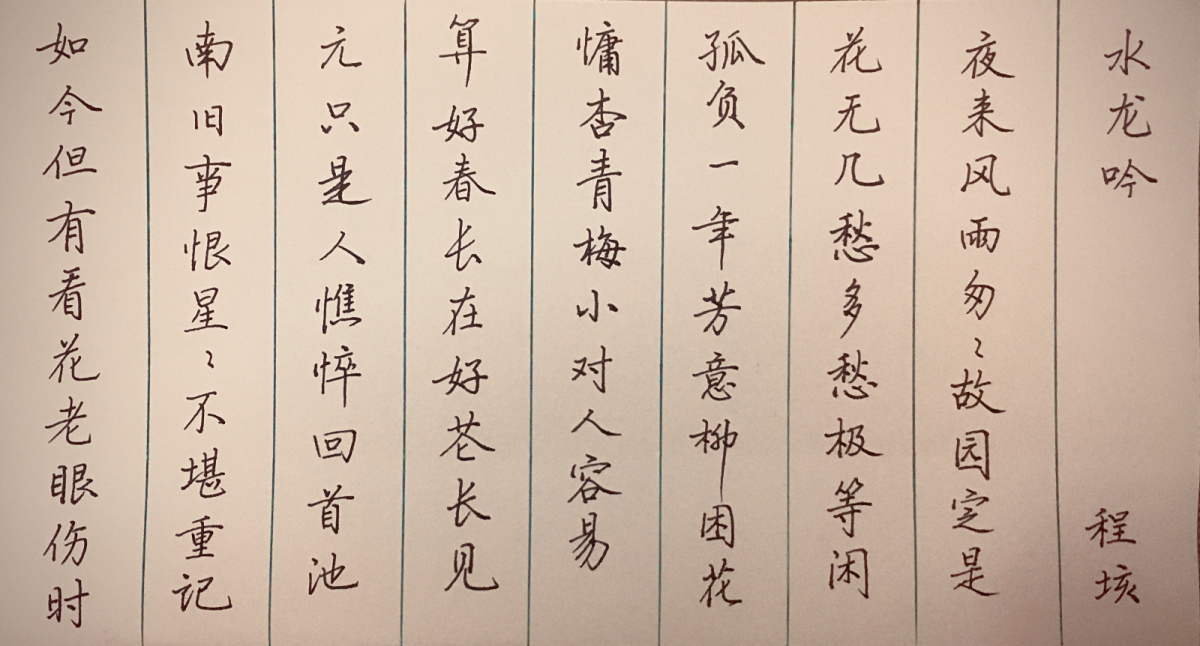 水龙吟 程垓
夜来风雨匆〻故园定是
花无几愁多愁极等闲
孤负一年芳意柳困花
慵杏青梅小对人容易
算好春长在好花长见
元只是人憔悴回首池
南旧事恨星〻不堪重记
如今但有看花老眼伤时